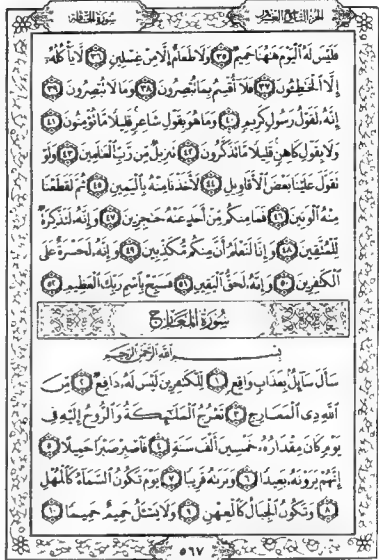 الجزء التاسع والعشرون سورة الحاقة
فَلَيْسَ لَهُ ٱلْيَوْمَ هَٰهُنَا حَمِيمٌ ٣٥ وَلَا طَعَامٌ إِلَّا مِنْ غِسْلِينٍ ٣٦ لَّا يَأْكُلُهُۥٓ
إِلَّا ٱلْخَٰطِـُٔونَ ٣٧ فَلَآ أُقْسِمُ بِمَا تُبْصِرُونَ ٣٨ وَمَا لَا تُبْصِرُونَ ٣٩
إِنَّهُۥ لَقَوْلُ رَسُولٍ كَرِيمٍ ٤٠ وَمَا هُوَ بِقَوْلِ شَاعِرٍ قَلِيلًا مَّا تُؤْمِنُونَ ٤١
وَلَا بِقَوْلِ كَاهِنٍ قَلِيلًا مَّا تَذَكَّرُونَ ٤٢ تَنزِيلٌ مِّن رَّبِّ ٱلْعَٰلَمِينَ ٤٣ وَلَوْ
تَقَوَّلَ عَلَيْنَا بَعْضَ ٱلْأَقَاوِيلِ ٤٤ لَأَخَذْنَا مِنْهُ بِٱلْيَمِينِ ٤٥ ثُمَّ لَقَطَعْنَا
مِنْهُ ٱلْوَتِينَ ٤٦ فَمَا مِنكُم مِّنْ أَحَدٍ عَنْهُ حَٰجِزِينَ ٤٧ وَإِنَّهُۥ لَتَذْكِرَةٌ
لِّلْمُتَّقِينَ ٤٨ وَإِنَّا لَنَعْلَمُ أَنَّ مِنكُم مُّكَذِّبِينَ ٤٩ وَإِنَّهُۥ لَحَسْرَةٌ عَلَى
ٱلْكَٰفِرِينَ ٥٠ وَإِنَّهُۥ لَحَقُّ ٱلْيَقِينِ ٥١ فَسَبِّحْ بِٱسْمِ رَبِّكَ ٱلْعَظِيمِ ٥٢
سُورَةُ المَعَارِجِ
بِسْمِ ٱللَّهِ ٱلرَّحْمَٰنِ ٱلرَّحِيمِ
سَأَلَ سَآئِلٌۢ بِعَذَابٍ وَاقِعٍ ١ لِّلْكَٰفِرِينَ لَيْسَ لَهُۥ دَافِعٌ ٢ مِّنَ
ٱللَّهِ ذِى ٱلْمَعَارِجِ ٣ تَعْرُجُ ٱلْمَلَٰٓئِكَةُ وَٱلرُّوحُ إِلَيْهِ فِى
يَوْمٍ كَانَ مِقْدَارُهُۥ خَمْسِينَ أَلْفَ سَنَةٍ ٤ فَٱصْبِرْ صَبْرًا جَمِيلًا ٥
إِنَّهُمْ يَرَوْنَهُۥ بَعِيدًا ٦ وَنَرَىٰهُ قَرِيبًا ٧ يَوْمَ تَكُونُ ٱلسَّمَآءُ كَٱلْمُهْلِ
٨ وَتَكُونُ ٱلْجِبَالُ كَٱلْعِهْنِ ٩ وَلَا يَسْـَٔلُ حَمِيمٌ حَمِيمًا ١٠
٥٦٧